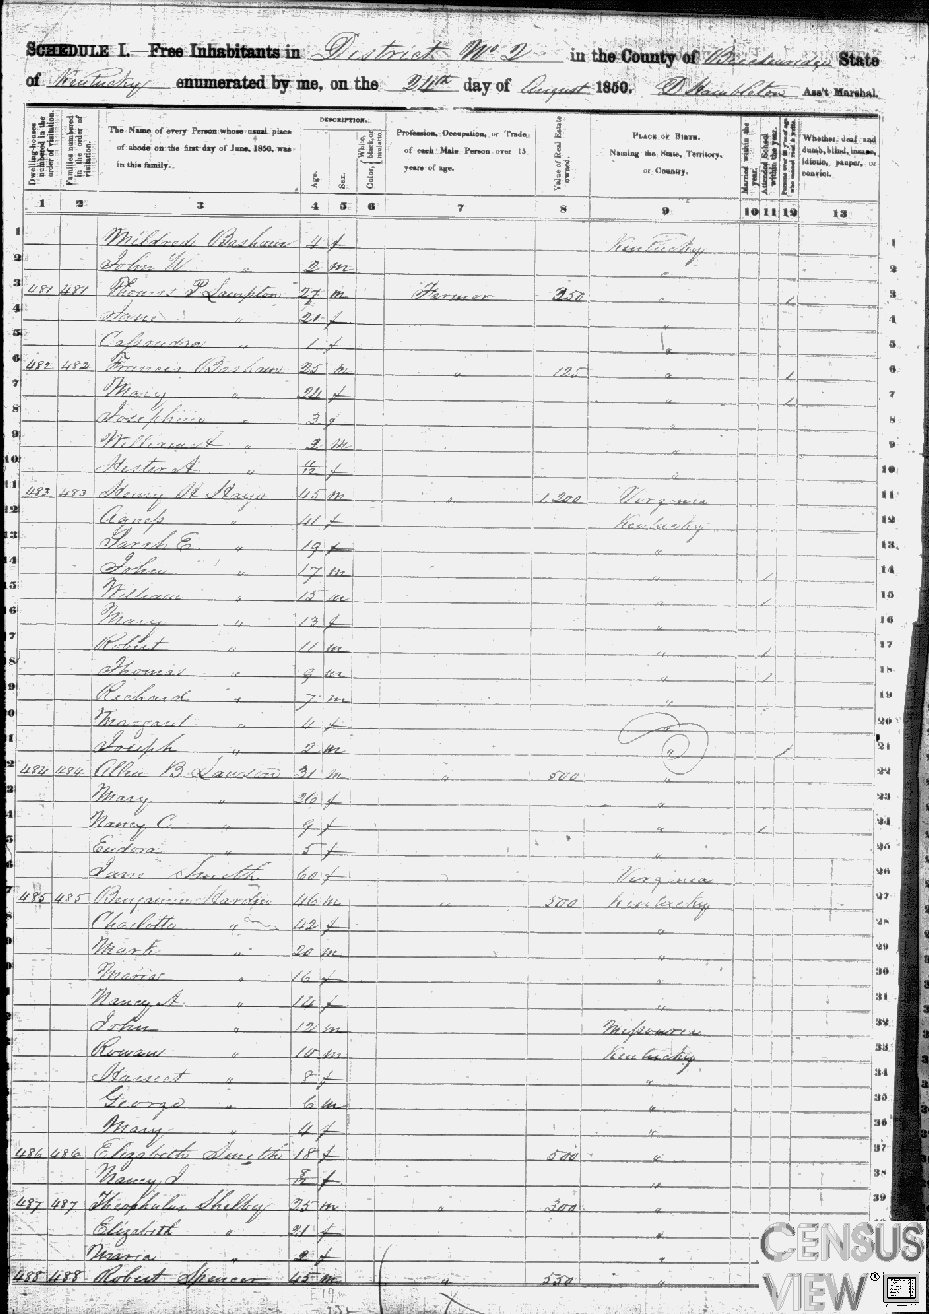 SCHEDULE I. Free Inhabitants in District No 2 in the County of Breckenridge State
of Kentucky enumerated by me, on the 24th day of August 1850. D Hambleton Ass't Marshal.
Dwelling-houses numbered in the order of visitation.
Families numbered in the order of visitation.
The Name of every Person whose usual place of abode on the first day of June, 1850, was in this family.
DESCRIPTION.
Age.
Sex.
Color, White, black, or mulatto.
Profession, Occupation, or Trade of each Male Person over 15 years of age.
Value of Real Estate owned.
PLACE OF BIRTH. Naming the State, Territory, or Country.
Married within the year.
Attended School within the year.
Persons over 20 y'rs of age who cannot read & write.
Whether deaf and dumb, blind, insane, idiotic, pauper, or convict.
1 2 3 4 5 6 7 8 9 10 11 12 13
1 Mildred Bashaw 4 f Kentucky 1
2 John W " 2 m " 2
3 481 481 Thomas P Lampton 27 m Farmer 250 " 1 3
4 Jane " 21 f " 4
5 Cassandra " 1 f " 5
6 482 482 Frances Bashaw 25 m " 125 " 1 6
7 Mary " 24 f " 1 7
8 Josephine " 3 f " 8
9 William A " 2 m " 9
10 Hester A " f " 10
11 483 483 Henry H Kayo 45 m " 1,200 Virginia 11
12 Agness " 41 f Kentucky 12
13 Sarah E " 19 f " 13
14 John " 17 m " 1 14
15 William " 15 m " 1 15
16 Mary " 13 f " 16
17 Robert " 11 m " 1 17
18 Thomas " 9 m " 1 18
19 Richard " 7 m " 19
20 Margaret " 4 f " 20
21 Joseph " 2 m " 1 21
22 484 484 Allen B Lawson 31 m " 500 " 22
23 Mary " 26 f " 23
24 Nancy C. " 9 f " 1 24
25 Eudora " 5 f " 25
26 Jane Smith 60 f Virginia 26
27 485 485 Benjamin Hardin 46 m " 500 Kentucky 27
28 Charlotte " 42 f " 28
29 Mark " 20 m " 29
30 Maria " 16 f " 30
31 Nancy A. " 14 f " 31
32 John " 12 m Missouri 32
33 Rowan " 10 m Kentucky 33
34 Harriet " 8 f " 34
35 George " 6 m " 35
36 Mary " 4 f " 36
37 486 486 Elizabeth Smith 18 f 500 " 37
38 Nancy J f " 38
39 487 487 Theophalus Shelby 25 m " 300 " 39
Elizabeth " 21 f "
Maria " 2 f
488 488 Robert Spencer 45 m " 550 "
CENSUS
VIEW ®